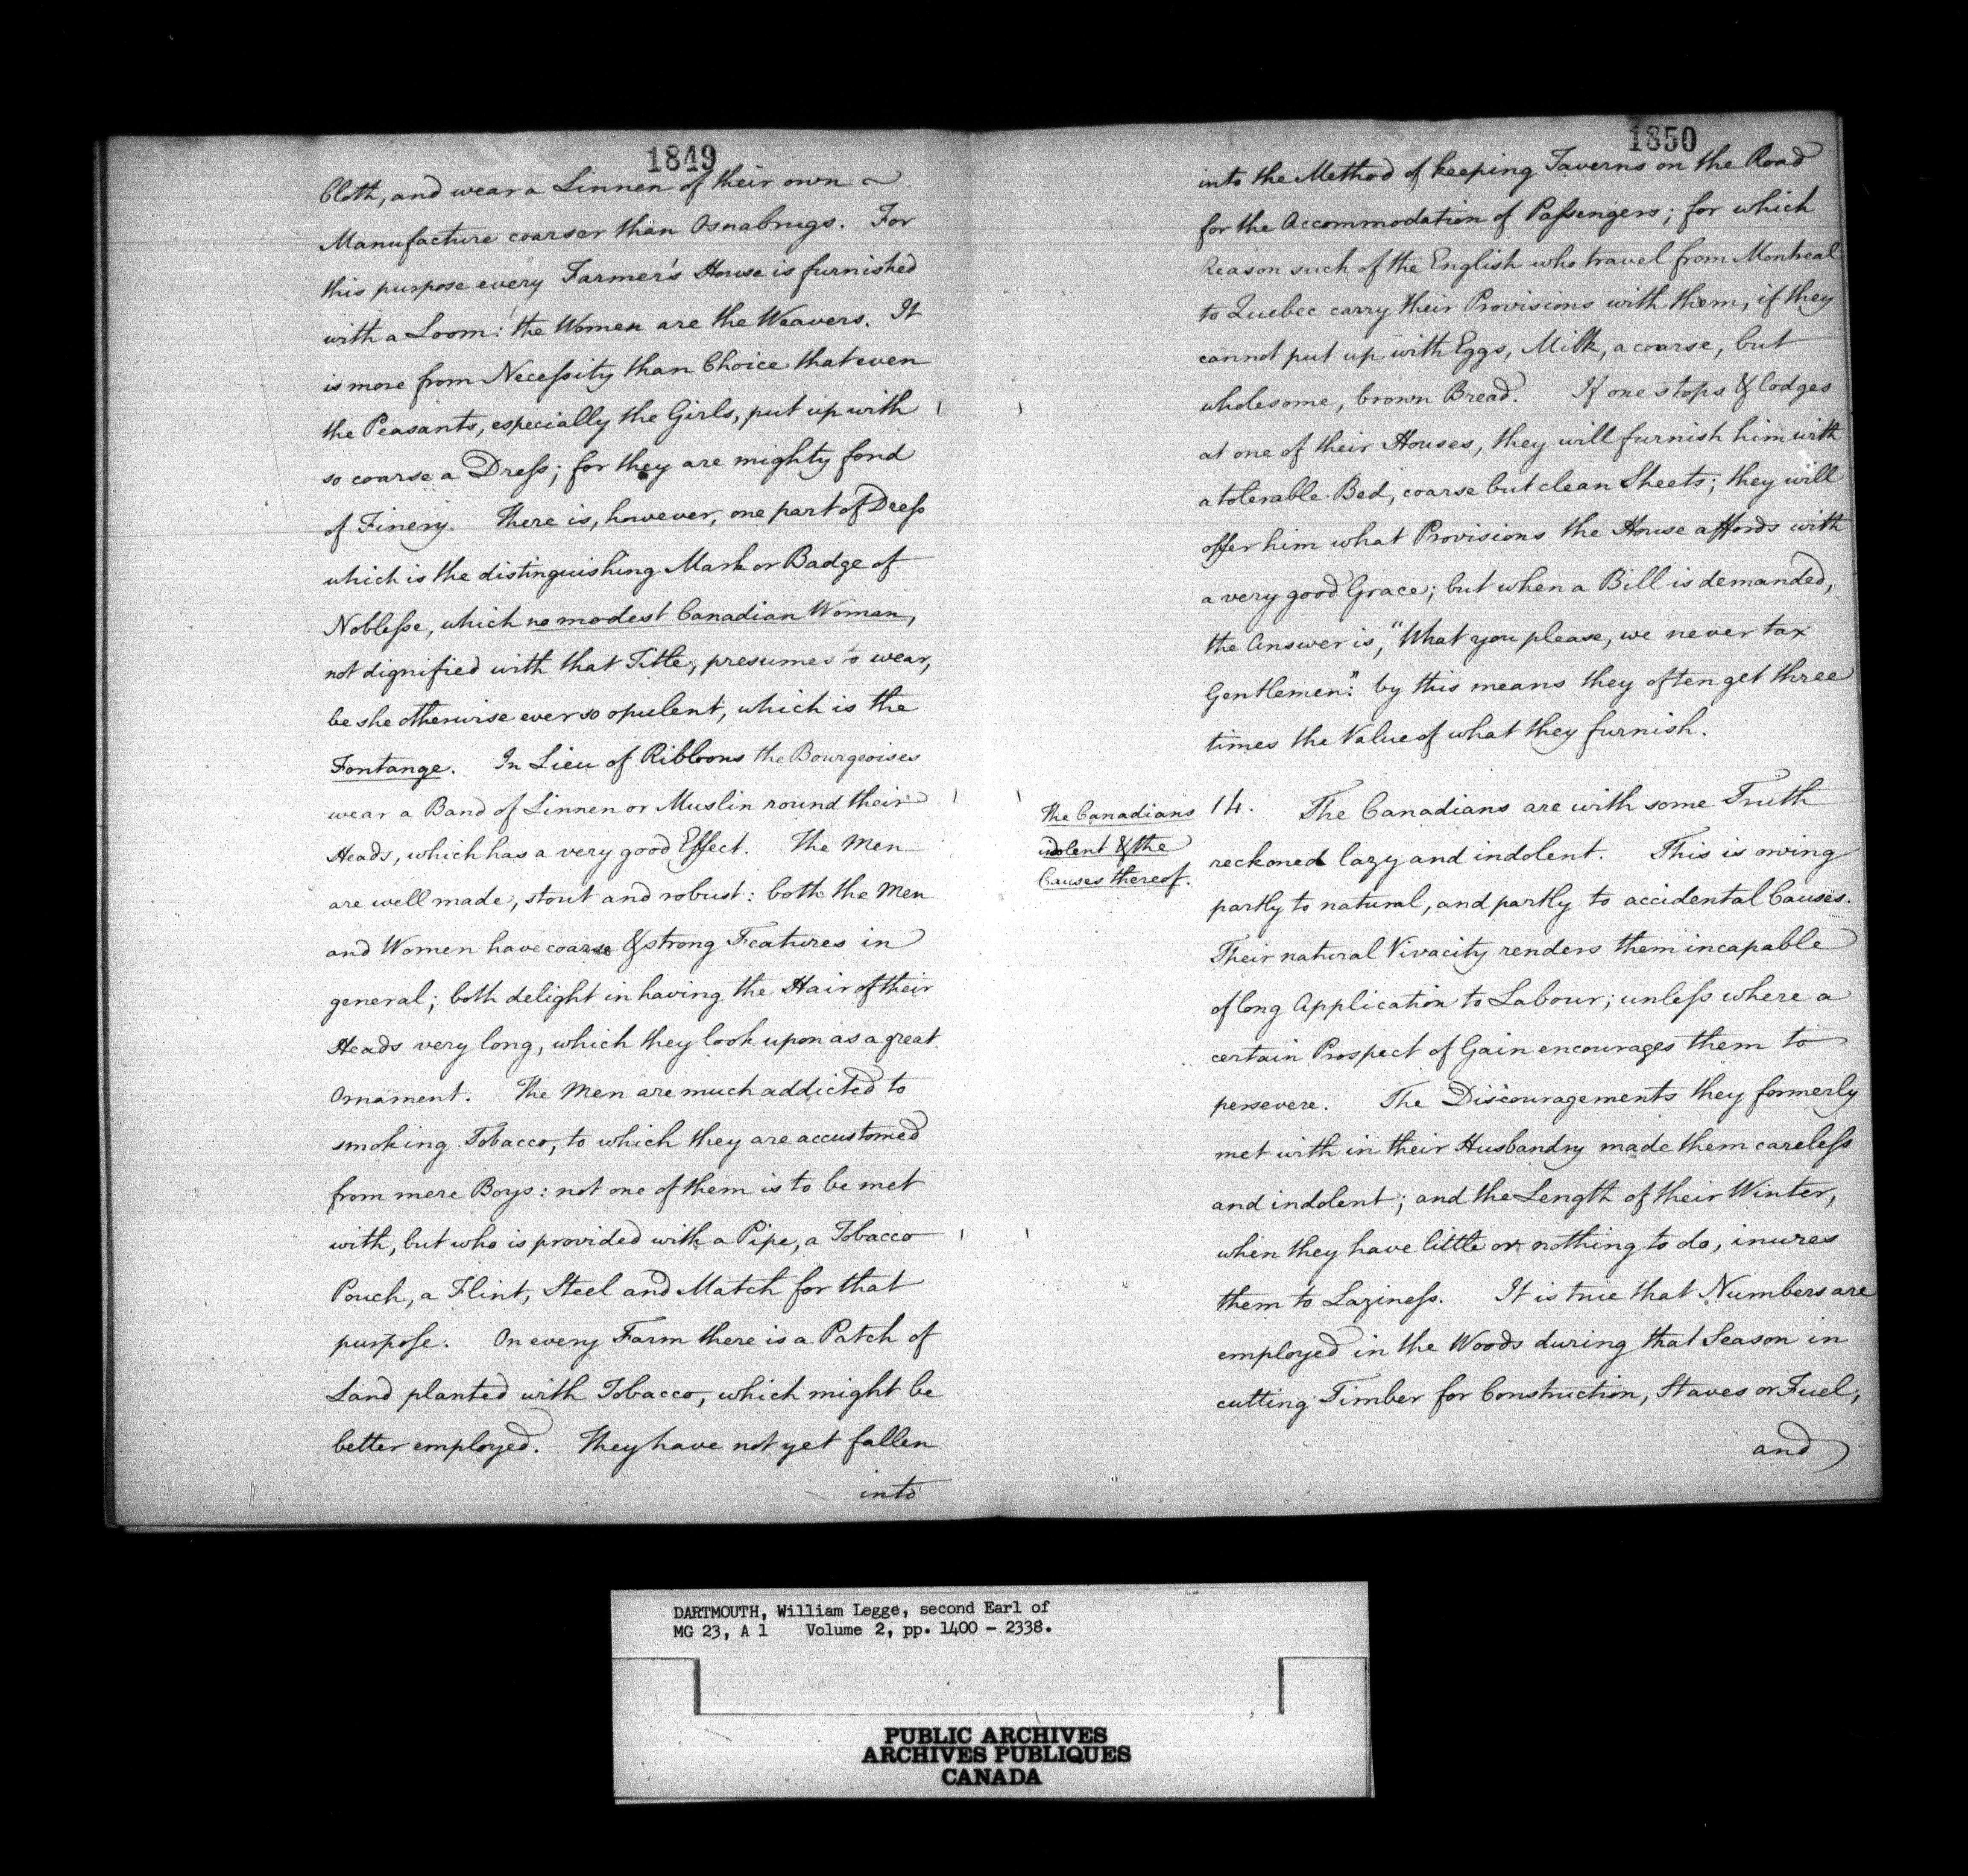 1849
Cloth, and wear a Linnen of their own
Manufacture coarser than Osnabrugs. For
this purpose every Farmer's House is furnished
with a Loom: the Women are the Weavers. It
is more from Necessity than Choice that even
the Peasants, especially the Girls, put up with
so coarse a Dress; for they are mighty fond
of Finery. There is, however, one part of Dress
which is the distinguishing Mark or Badge of
Noblesse, which no modest Canadian Woman,
not dignified with that Title, presumes to wear,
be she otherwise ever so opulent, which is the
Fontange. In Lieu of Ribbons the Bourgeoises
wear a Band of Linnen or Muslin round their
Heads, which has a very good Effect. The Men
are well made, stout and robust: both the Men
and Women have coarse & strong Features in
general; both delight in having the Hair of their
Heads very long, which they look upon as a great
Ornament. The Men are much addicted to
smoking Tobacco, to which they are accustomed
from mere Boys: not one of them is to be met
with, but who is provided with a Pipe, a Tobacco
Pouch, a Flint, Steel and Match for that
purpose. On every Farm there is a Patch of
Land planted with Tobacco, which might be
better employed. They have not yet fallen
into
1850
into the Method of keeping Taverns on the Road
for the Accommodation of Passengers; for which
Reason such of the English who travel from Montreal
to Quebec carry their Provisions with them, if they
cannot put up with Eggs, Milk, a coarse, but
wholesome, brown Bread. If one stops & lodges
at one of their Houses, they will furnish him with
a tolerable Bed, coarse but clean Sheets; they will
offer him what Provisions the House affords with
a very good Grace; but when a Bill is demanded,
the Answer is, "What you please, we never tax
Gentlemen": by this means they often get three
times the Value of what they furnish.
The Canadians
indolent & the
Causes thereof.
14. The Canadians are with some Truth
reckoned lazy and indolent. This is owing
partly to natural, and partly to accidental Causes.
Their natural Vivacity renders them incapable
of long Application to Labour; unless where a
certain Prospect of Gain encourages them to
persevere. The Discouragements they formerly
met with in their Husbandry made them careless
and indolent; and the Length of their Winter,
when they have little or nothing to do, inures
them to Laziness. It is true that Numbers are
employed in the Woods during that Season in
cutting Timber for Construction, Staves or Fuel,
and
DARTMOUTH, William Legge, second Earl of
MG 23, A 1 Volume 2, pp. 1400 - 2338.
PUBLIC ARCHIVES
ARCHIVES PUBLIQUES
CANADA